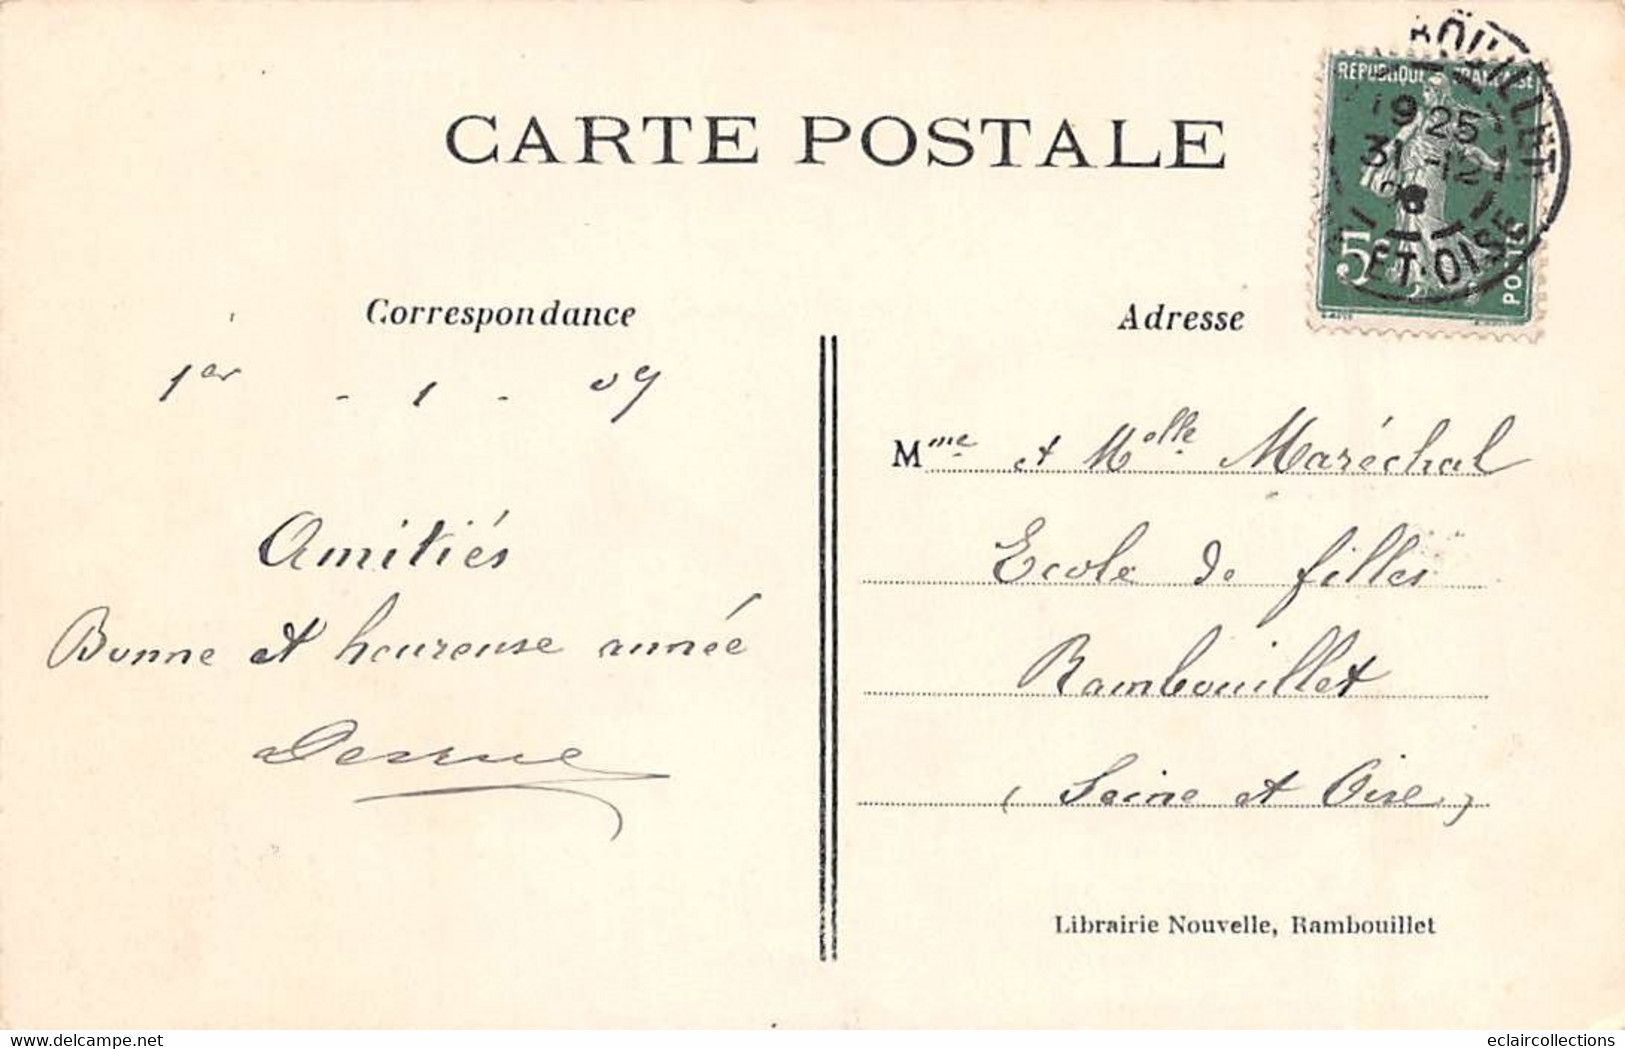 CARTE POSTALE
REPUBLIQUE FRANÇAISE
19 25
31 -12
ET-OISE
5c
POSTES
Correspondance
Adresse
1er - 1 - 09
Mme et Melle Maréchal
Amitiés
Ecole de filles
Bonne et heureuse année
Rambouillet
(Seine et Oise)
Librairie Nouvelle, Rambouillet
delcampe.net
eclaircollections